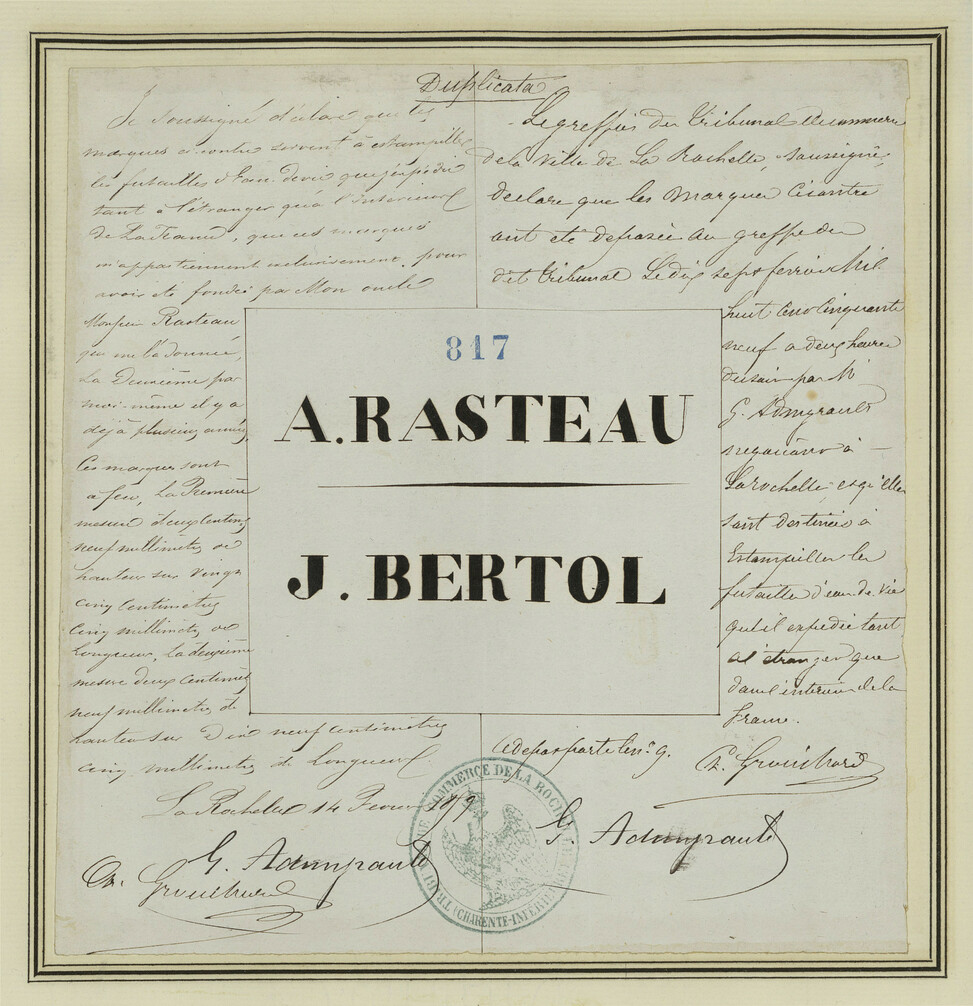 Duplicata
Je soussigné déclare que les
marques ci-contre servent à estampiller
les futailles d'eau-de-vie que j'expédie
tant à l'étranger qu'à l'intérieur
de la France, que ces marques
m'appartiennent exclusivement, pour
avoir été fondée par Mon oncle
Monsieur Rasteau
qui me l'a donnée,
La Deuxième par
moi-même il y a
déjà plusieurs années,
Ces marques sont
à feu, La Première
mesure deux centimètres
neuf millimètres de
hauteur sur vingt
cinq centimètres
cinq millimètres de
longueur, La deuxième
mesure deux centimètres
neuf millimètres de
hauteur sur Dix neuf centimètres
cinq millimètres de Longueur
La Rochelle 14 Février 1859
G. Admyrauld
Le greffier du Tribunal de commerce
de la Ville de La Rochelle, soussigné,
declare que les Marques cicontre
ont été déposées au greffe du
dit tribunal Le dix sept fevrier Mil
huit cent Cinquante
neuf a deux heures
du soir par Mr
G. Admyrauld
négociant à
La Rochelle et qu'elles
sont destinées à
Estampiller les
futailles d'eau-de-vie
qu'il expédie tant
a l'étranger que
dans l'interieur de la
France.
Ce depot porte le n° 9.
G. Admyrauld
817
A. RASTEAU
J. BERTOL
TRIBUNAL DE COMMERCE DE LA ROCHELLE
(CHARENTE-INFÉRIEURE)